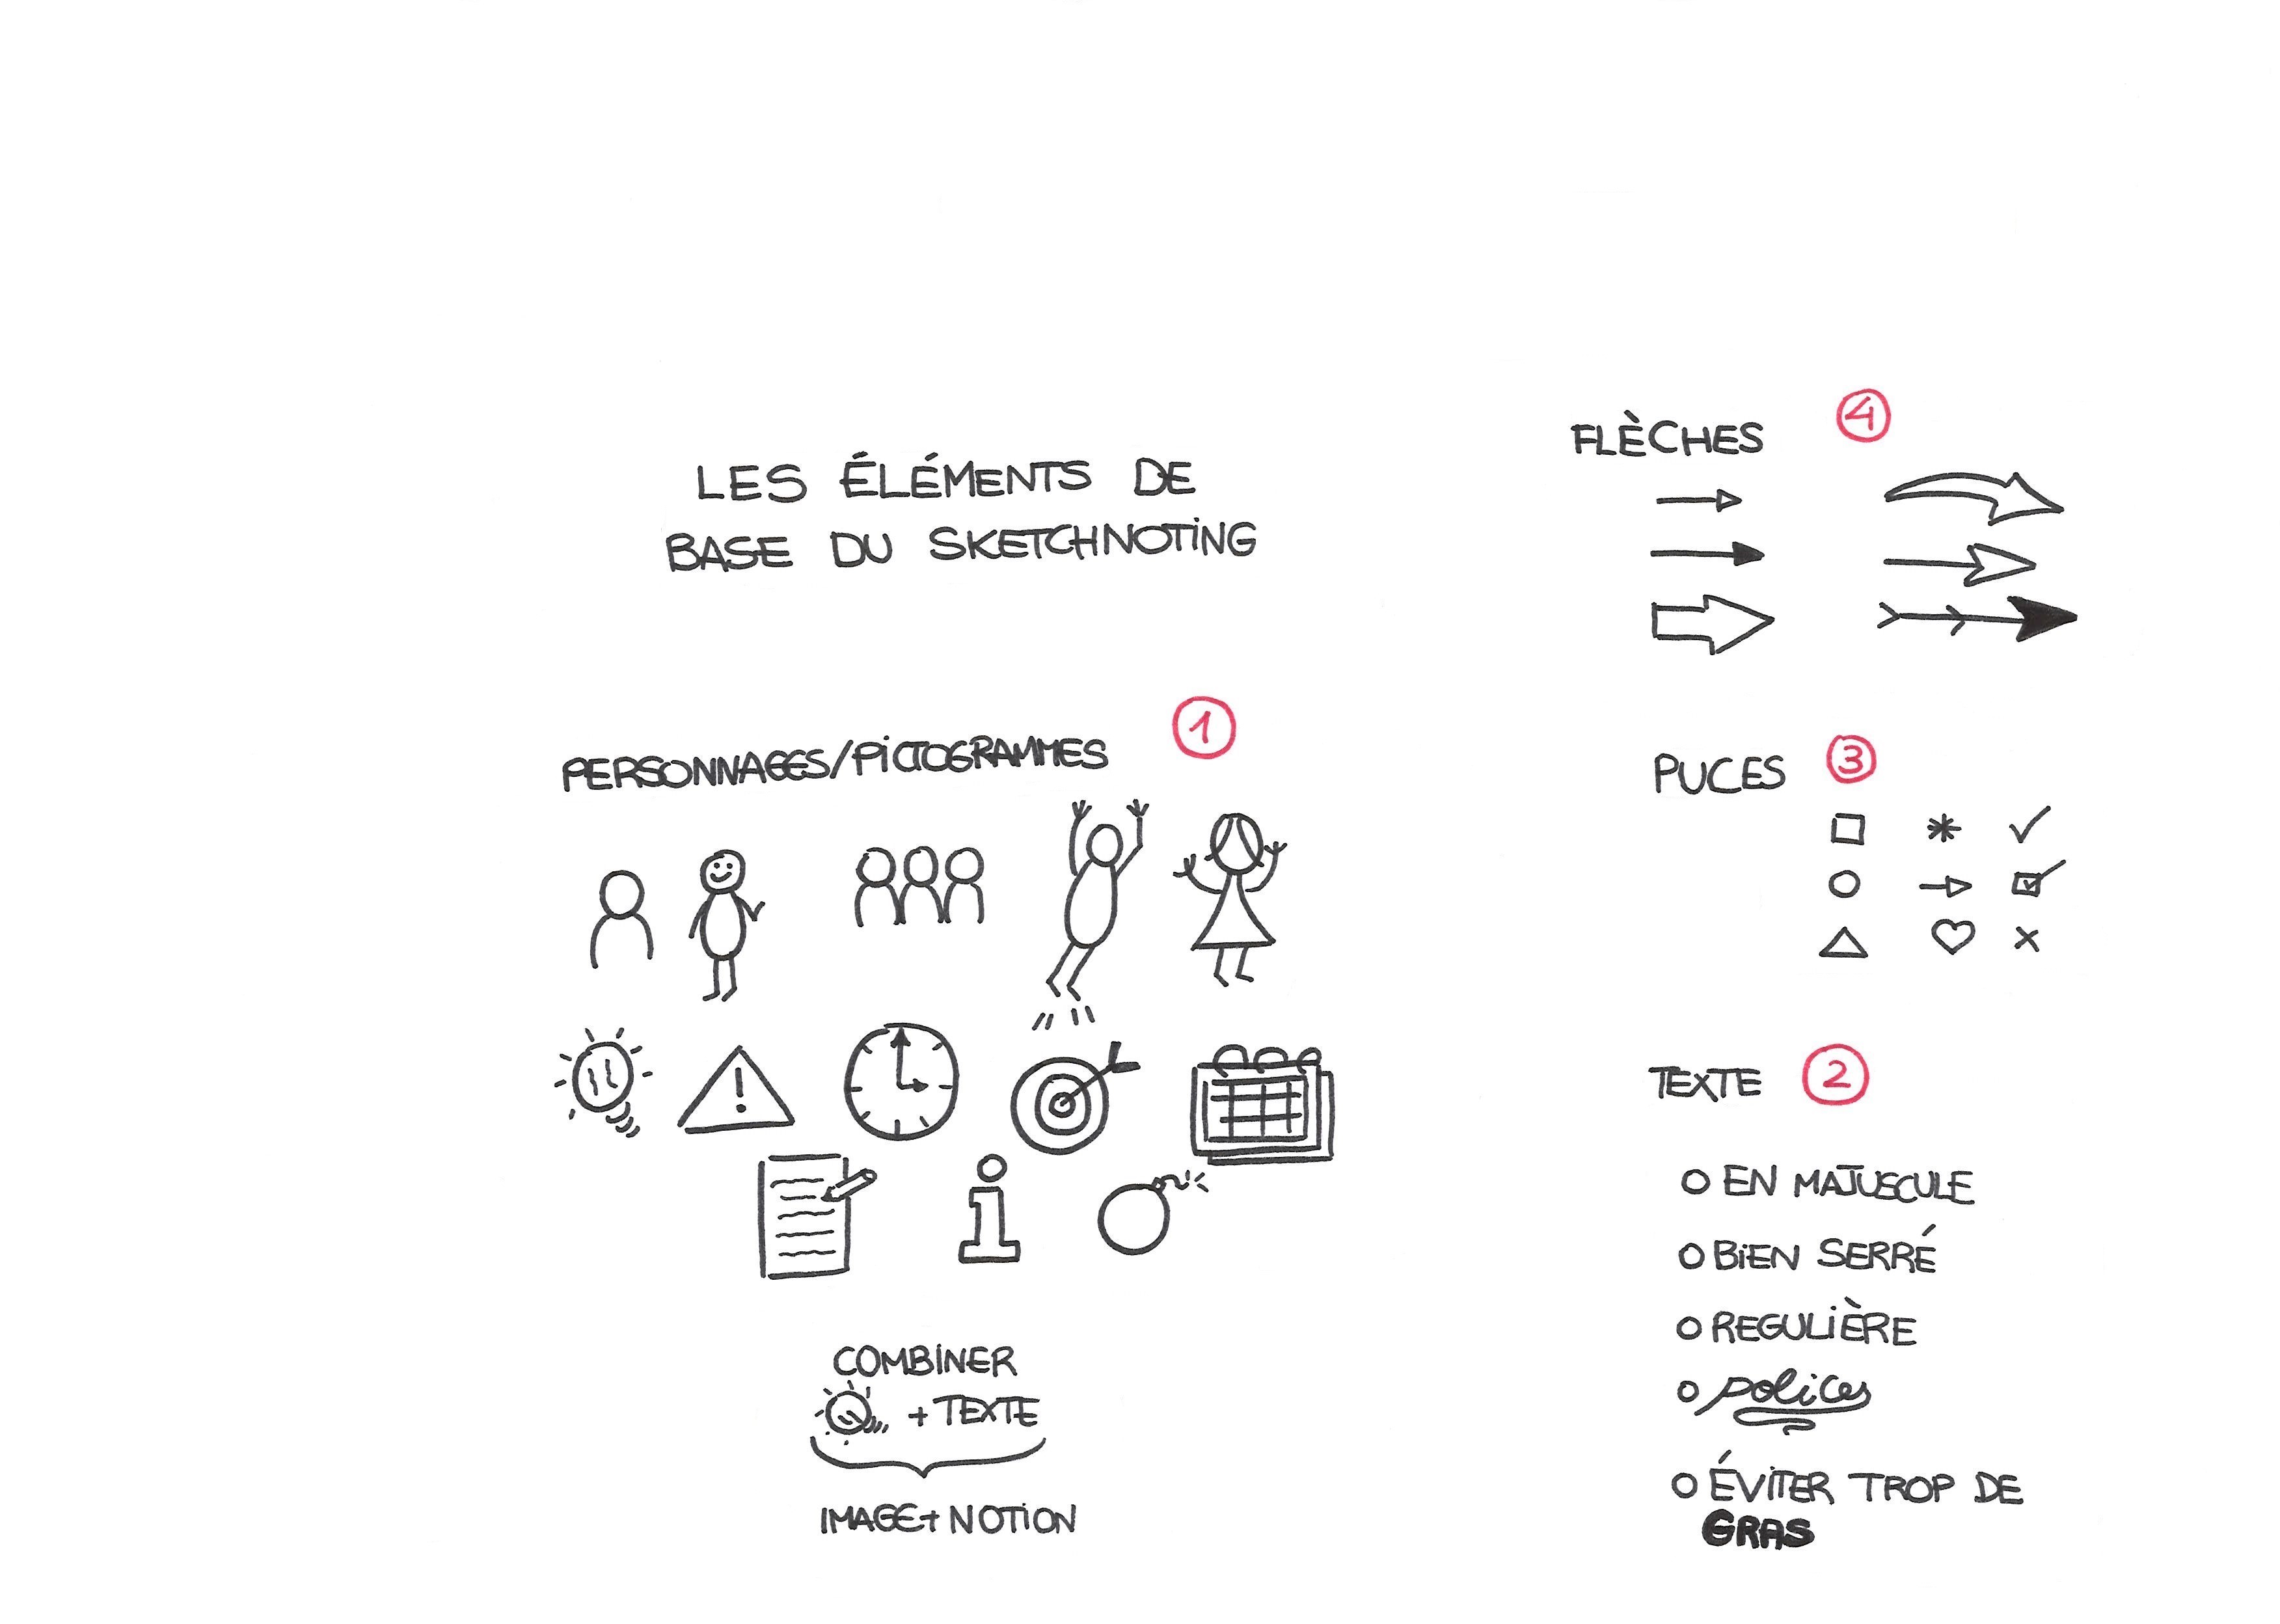 LES ÉLÉMENTS DE
BASE DU SKETCHNOTING
PERSONNAGES/PICTOGRAMMES 1
!
i
COMBINER
+ TEXTE
IMAGE+ NOTION
FLÈCHES 4
PUCES 3
TEXTE 2
EN MAJUSCULE
BIEN SERRÉ
REGULIÈRE
polices
ÉVITER TROP DE
GRAS